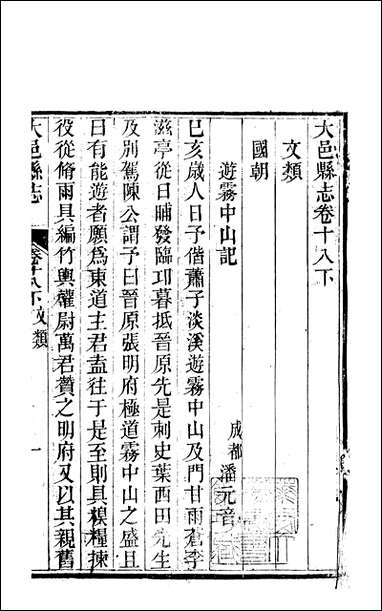 大邑縣志卷十八下
文類
國朝
遊霧中山記
成都 潘元音
巳亥歳人日予偕蕭子淡溪遊霧中山及門甘雨蒼李
滋亭從日晡發臨卭暮抵晉原先是刺史葉西田先生
及別駕陳公謂予曰晉原張明府極道霧中山之盛且
曰有能遊者願爲東道主君盍往于是至則具糗糧揀
役從脩雨具編竹輿蘿尉萬君贊之明府又以其親舊
大邑縣志
卷十八下文類
一